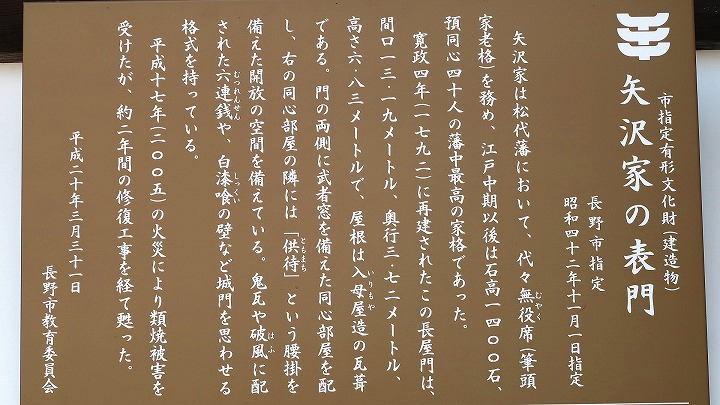 市指定有形文化財(建造物)
矢沢家の表門
長野市指定
昭和四十二年十一月一日指定
矢沢家は松代藩において、代々無役席(筆頭
家老格)を務め、江戸中期以後は石高一四〇〇石、
預同心四十人の藩中最高の家格であった。
寛政四年(一七九二)に再建されたこの長屋門は、
間口一三・一九メートル、奥行三・七二メートル、
高さ六・八三メートルで、屋根は入母屋造の瓦葺
である。門の両側に武者窓を備えた同心部屋を配
し、右の同心部屋の隣には「供待」という腰掛を
備えた開放の空間を備えている。鬼瓦や破風に配
された六連銭や、白漆喰の壁など城門を思わせる
格式を持っている。
平成十七年(二〇〇五)の火災により類焼被害を
受けたが、約二年間の修復工事を経て甦った。
平成二十年三月三十一日
長野市教育委員会